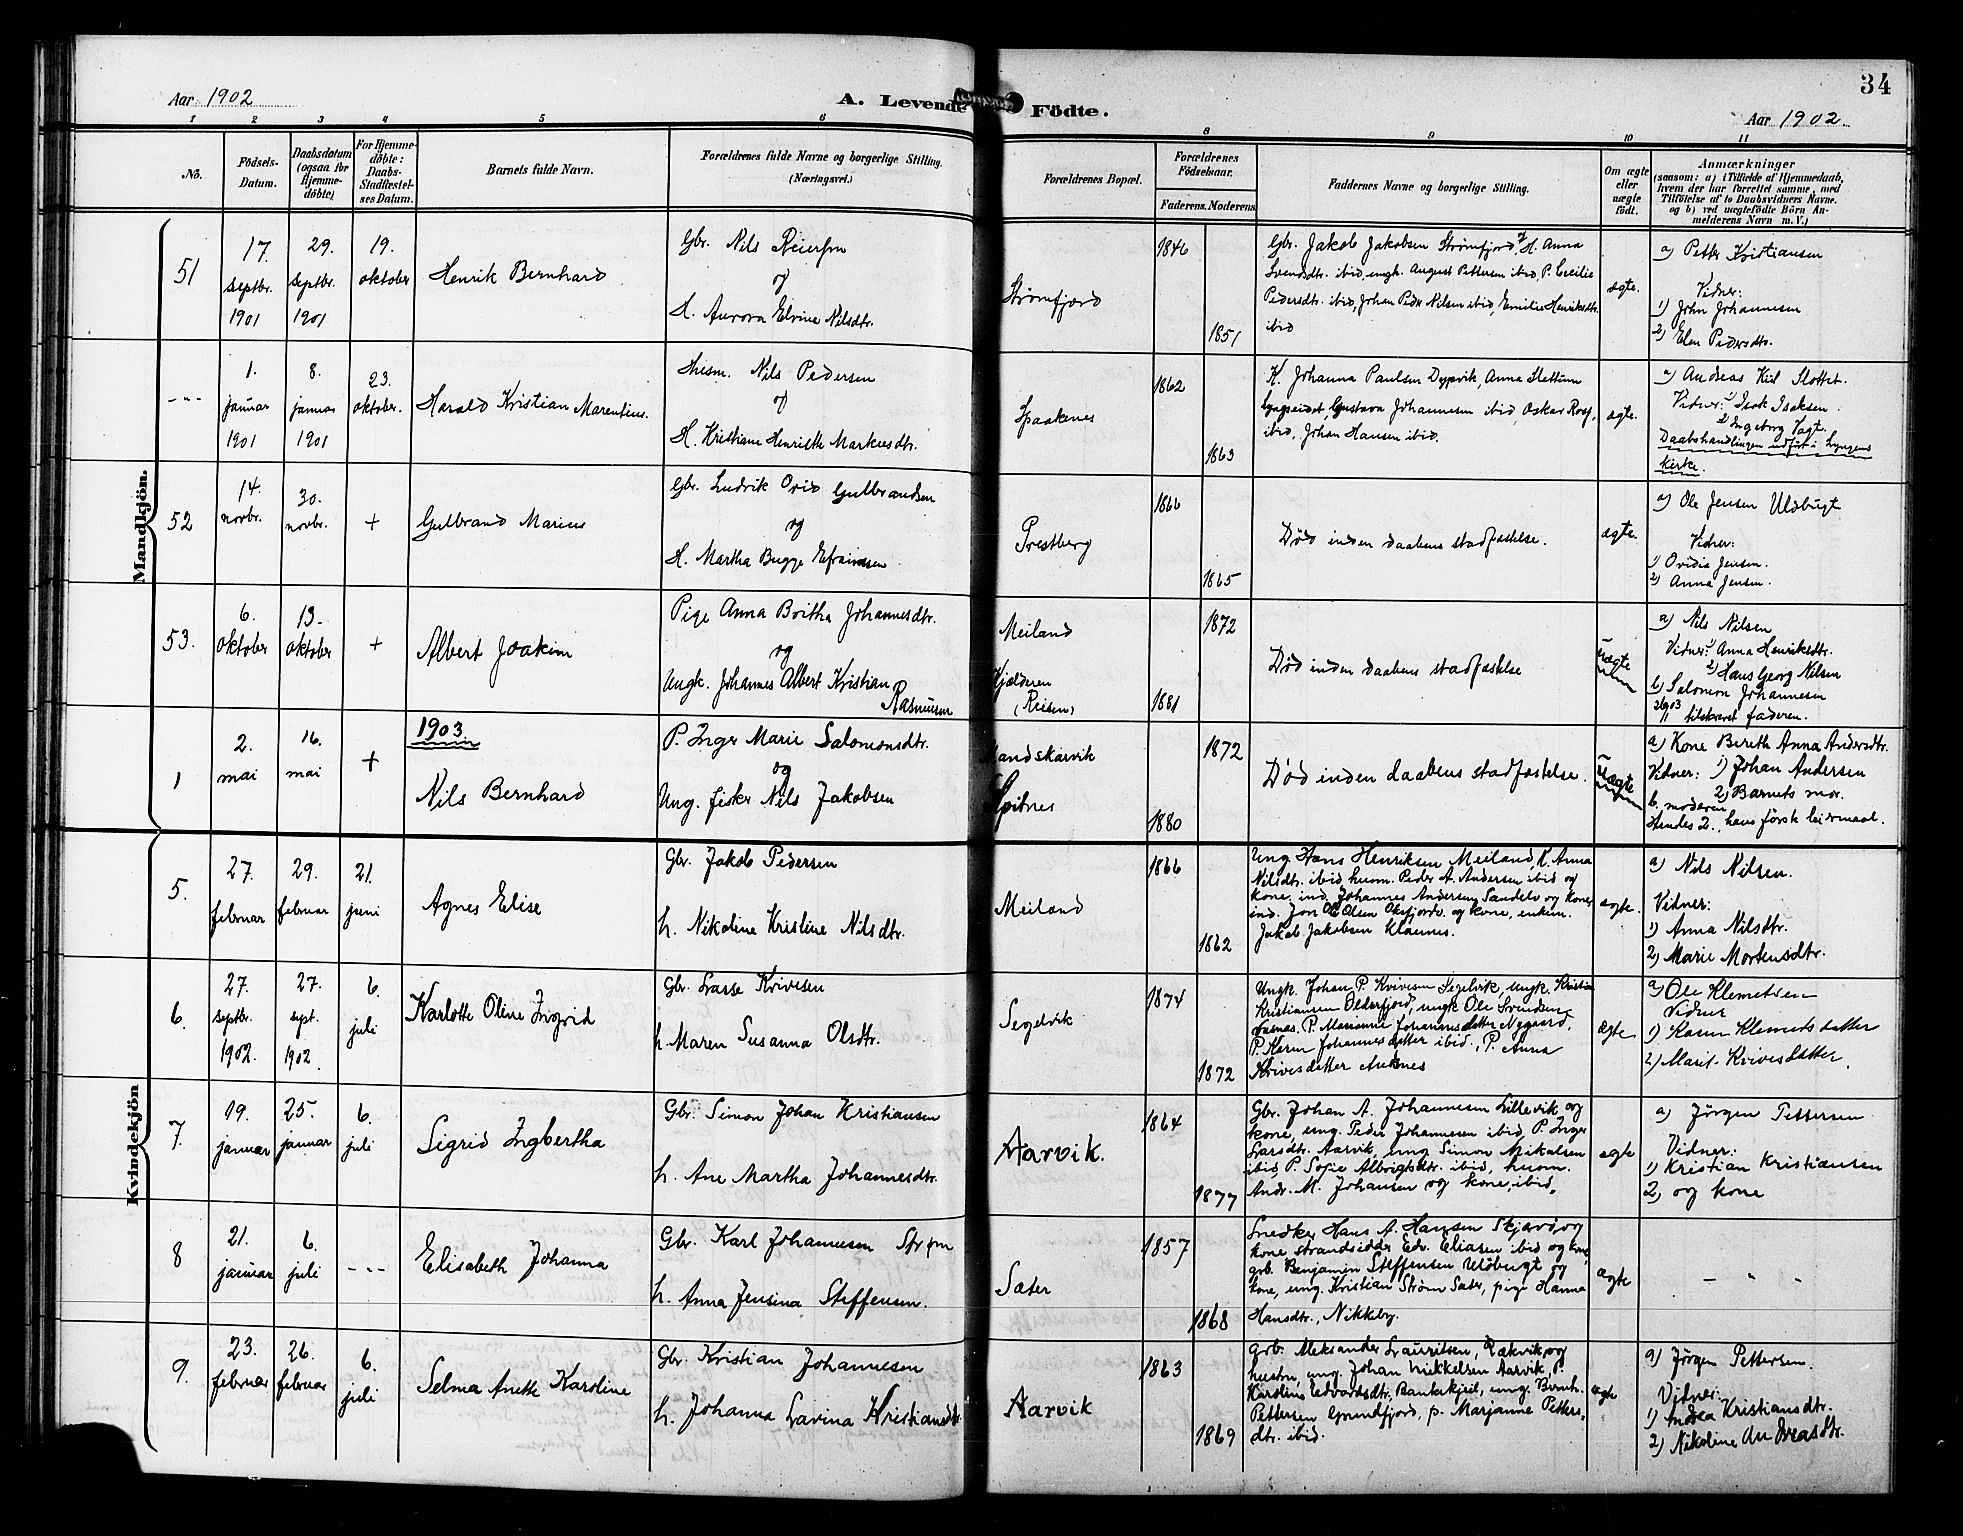 34
Aar 1902
A. Levende Födte.
Aar 1902.
1 2 3 4 5 6 8 9 10 11
No.
Födsels-Datum.
Daabsdatum (ogsaa for Hjemmedöbte).
For Hjemmedöbte: Daabs-Stadfæstelses Datum.
Barnets fulde Navn.
Forældrenes fulde Navne og borgerlige Stilling.
(Næringsvei.)
Forældrenes Bopæl.
Forældrenes Födselsaar.
Faderens. Moderens.
Faddernes Navne og borgerlige Stilling.
Om ægte eller uægte födt.
Anmærkninger
(saasom: a) i Tilfælde af Hjemmedaab,
hvem der har forrettet samme, med
Tilföielse af to Daabsvidners Navne.
og b) ved uægtefödte Börn An-
melderens Navn m. V.)
Mandkjön.
51
17. septbr. 1901
29. septbr. 1901
19. oktober
Henrik Bernhard
Gbr. Nils Reiersen
og
H. Aurora Elvine Nilsdtr.
Strømfjord
1846
1851
Gbr. Jakob Jakobsen Strømfjord og H. Anna
Svendsdtr. ibid, ungk. August Pettersen ibid, P. Cecilie
Pedersdtr. ibid, Johan Peder Nilsen ibid, Emilie Henriksdtr.
ibid
ægte.
a) Petter Kristiansen
Vidner:
1) John Johannesen
2) Elen Pedersdtr.
---
1. januar 1901
8. januar 1901
23. oktober.
Harald Kristian Marentius.
Husm. Nils Pedersen
og
H. Kristiane Henriette Markusdtr.
Spaakenes
1862
1863
K. Johanna Paulsen Dypvik, Anna Slettum
Lyngseidet, Gustava Johannesen ibid, Oskar Ross,
ibid, Johan Hansen ibid.
ægte.
a) Andreas Kiil Slottet.
Vidner: 1) Isak Isaksen.
2) Ingeborg Vagt.
Daabshandlingen udført i Lyngens
Kirke.
52
14. novbr.
30. novbr.
+
Gulbrand Marius
Gbr. Ludvik Ovid Gulbrandsen
og
H. Martha Bugge Efraimsen
Prestberg
1866
1865
Død inden daabens stadfæstelse.
ægte.
a) Ole Jensen Uløbugt
Vidner:
1) Ovidia Jensen.
2) Anna Jensen.
53.
6. oktober
13. oktober
+
Albert Joakim
Pige Anna Britha Johannesdtr.
og
Ungk. Johannes Albert Kristian
Rasmussen
Meiland
(Reisen)
1872
1881
Død inden daabens stadfæstelse
uægte
a) Nils Nilsen
Vidner: 1) Anna Henriksdtr.
2) Hans Georg Nilsen
b) Salomon Johannesen
tilskrevet faderen.
1903.
1
2. mai
16. mai
+
Nils Bernhard
P. Inger Marie Salomonsdtr.
og
Ung. fisker Nils Jakobsen
1872
1880
Død inden daabens stadfæstelse.
uægte
a) Kone Bereth Anna Andersdtr.
Vidner: 1) Johan Andersen
2) Barnets mor.
b. moderen
Hendes 2., hans første leiermaal.
Kvindekjön
5.
27. februar
29. februar
21. juni
Agnes Elise
Gbr. Jakob Pedersen
h. Nikoline Kristine Nilsdtr.
Meiland
1866
1862
Ung. Hans Henriksen Meiland, K. Anna
Nilsdtr. ibid, husm. Peder A. Andersen ibid og
kone, ind. Johannes Andersen Sandelv og kone,
ind. Jon Olsen Oksfjord. og kone, enkem.
Jakob Jakobsen Klaunes.
ægte.
a) Nils Nilsen.
Vidner:
1) Anna Nilsdtr.
2) Marie Mortensdtr.
6.
27. septbr. 1902.
27. sept. 1902.
6. juli
Karlotte Oline Ingrid
Gbr. Lasse Kvivesen
h. Maren Susanna Olsdtr.
Segelvik
1874
1872
Ungk. Johan P. Kvivesen Segelvik, ungk. Kristian
Kristiansen Olderfjord, ungk. Ole Svendsen
P. Marianne Johannesdatter Nygaard,
P. Karen Johannesdatter ibid, P. Anna
Kvivesdatter
ægte
a) Ole Klemetsen
Vidner
1) Karen Klemetsdatter
2) Marit Kvivesdatter.
7.
19. januar
25. januar
6. juli
Sigrid Ingbertha
Gbr. Simon Johan Kristiansen
h. Ane Martha Johannesdtr.
Aarvik.
1864
1877
Gbr. Johan A. Johannesen Lillevik og
kone, ung. Peder Johannesen ibid, P. Inger
Larsdtr. Aarvik, ung. Simon Mikalsen
ibid, P. Sofie Albrigtsdtr. ibid, husm.
Andr. M. Johansen og kone, ibid.
ægte
a) Jörgen Pettersen
Vidner:
1) Kristian Kristiansen
2) og kone
8
21. januar
6. juli
---
Elisabeth Johanna
Gbr. Karl Johannesen Strøm
h. Anna Jensina Steffensen.
Sæter
1857
1868
Snedker Hans A. Hansen Skjervø og
kone, strandsidder Edv. Eliasen ibid og kone,
grb. Benjamin Steffensen Uløbugt og
kone, ung. Kristian Strøm Sæter, pige Hanna
Hansdtr., Nikkeby.
ægte
- " -
9.
23. februar
26. februar
6. juli
Selma Anette Karoline
Gbr. Kristian Johannesen
h. Johanna Lavina Kristiansdtr.
Aarvik
1863
1869
grb. Aleksander Lauritsen, Rakvik, og
hustru, ung. Johan Mikkelsen Aarvik, P.
Karoline Edvardsdtr. Bankekjeil, ung. Bernh.
Pettersen Grundfjord, p. Marjanne Petters-
dtr. ibid.
ægte
a) Jörgen Pettersen.
Vidner:
1) Andrea Kristiansdtr.
2) Nikoline Andreasdtr.